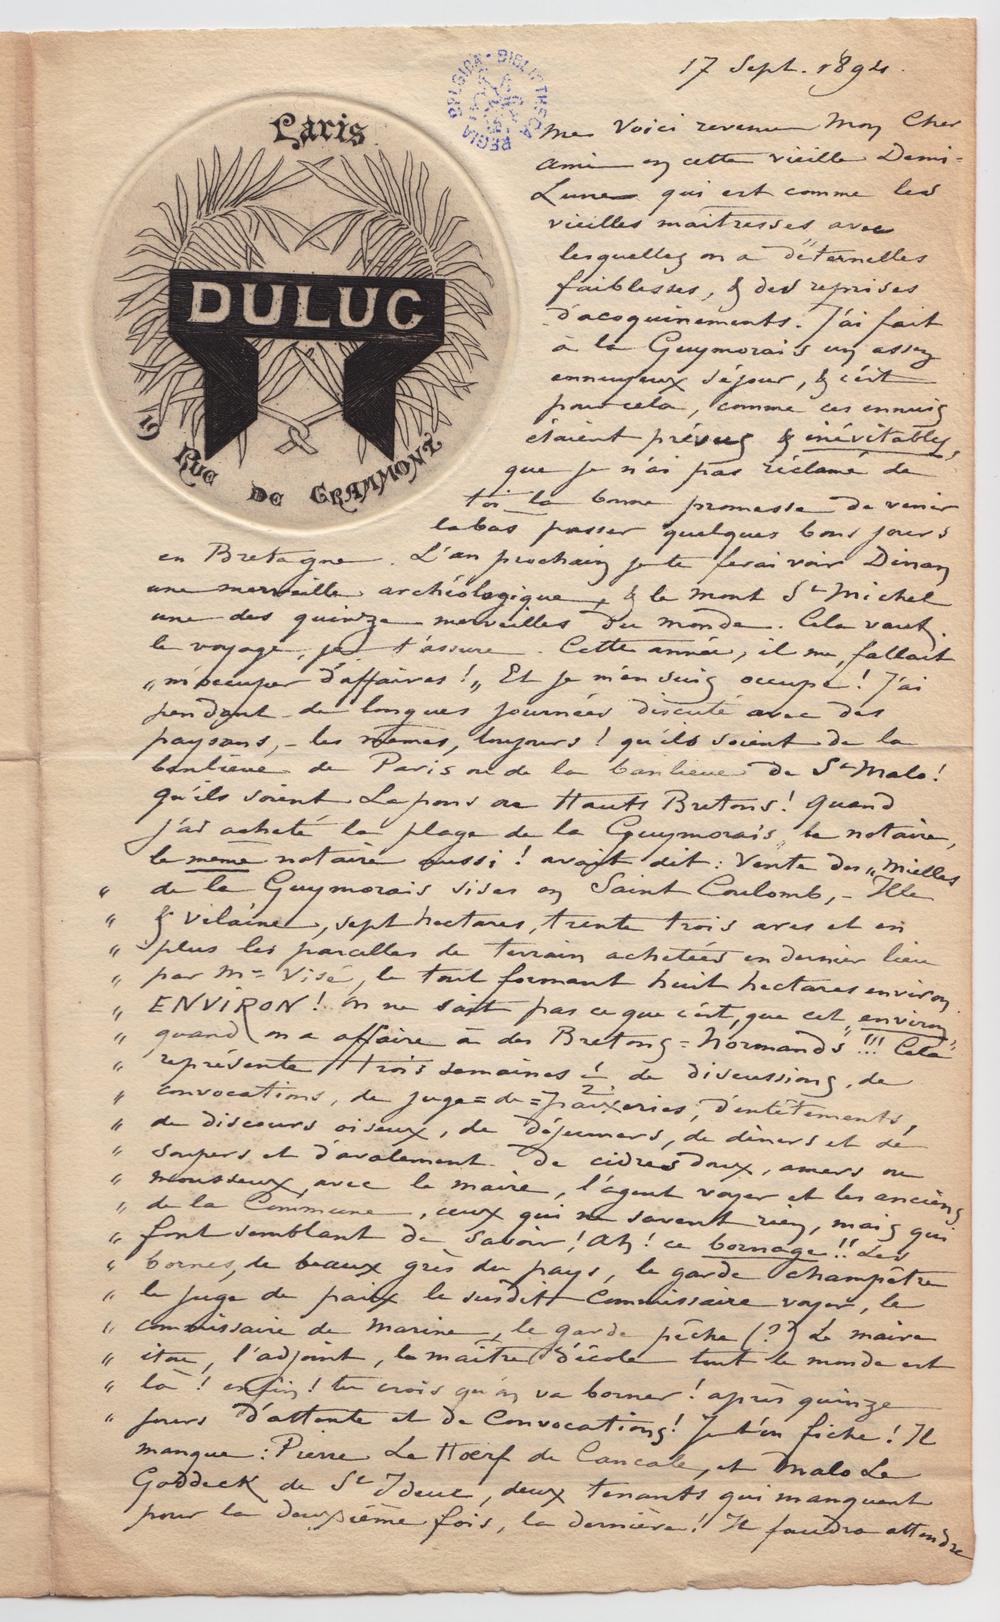 17 Sept. 1894.
Paris
DULUC
19 Rue DE GRAMMONT
REGIA BELGICA · BIBLIOTHECA
Me Voici revenu Mon Cher
Ami en cette vieille Demi-
Lune qui est comme les
vieilles maîtresses avec
lesquelles on a d'éternelles
faiblesses, & des reprises
d'acoquinements. J'ai fait
à la Guymorais un assez
ennuyeux séjour, & c'est
pour cela, comme ces ennuis
étaient prévus & inévitables,
que je n'ai pas réclamé de
toi la bonne promesse de venir
labas passer quelques bons jours
en Bretagne. L'an prochain je te ferai voir Dinan
une merveille archéologique, & le mont St Michel
une des quinze merveilles du monde. Cela vaut
le voyage, je t'assure. Cette année, il me fallait
„m'occuper d'affaires!„ Et je m'en suis occupé! J'ai
pendant de longues journées discuté avec des
paysans, - les mêmes, toujours! qu'ils soient de la
banlieue de Paris ou de la banlieue de St Malo!
Qu'ils soient Lapons ou Hauts Bretons! Quand
j'ai acheté la plage de la Guymorais, le notaire,
le même notaire aussi! avait dit: Vente des „Mielles
„ de la Guymorais sises en Saint Coulomb, - Ille
„ & vilaine, sept hectares, trente trois ares et en
„ plus les parcelles de terrain achetées en dernier lieu
„ par Me Visé, le tout formant huit hectares environ
„ ENVIRON! On ne sait pas ce que c'est, que cet „environ„
„ quand on a affaire à des Bretons=Normands!!! Cela
„ représente trois semaines 1/2 de discussions, de
„ convocations, de juge=de=paixeries, d'entêtements,
„ de discours oiseux, de déjeuners, de dîners et de
„ soupers et d'avalement de cidres doux, amers ou
„ mousseux, avec le maire, l'agent voyer et les anciens
„ de la Commune, ceux qui ne savent rien, mais qui
„ font semblant de savoir! Ah! ce bornage!! Les
„ bornes, de beaux grès du pays, le garde champêtre
„ le juge de paix le susdit Commissaire voyer, le
„ commissaire de Marine, le garde pêche (?) Le maire
„ itou, l'adjoint, le maître d'école tout le monde est
„ là! enfin! tu crois qu'on va borner! après quinze
„ jours d'attente et de Convocations! Je t'en fiche! Il
manque: Pierre Le Hoerf de Cancale, et Malo Le
Goddeck de St Ideuc, deux tenants qui manquent
pour la deuxième fois, la dernière! Il faudra attendre